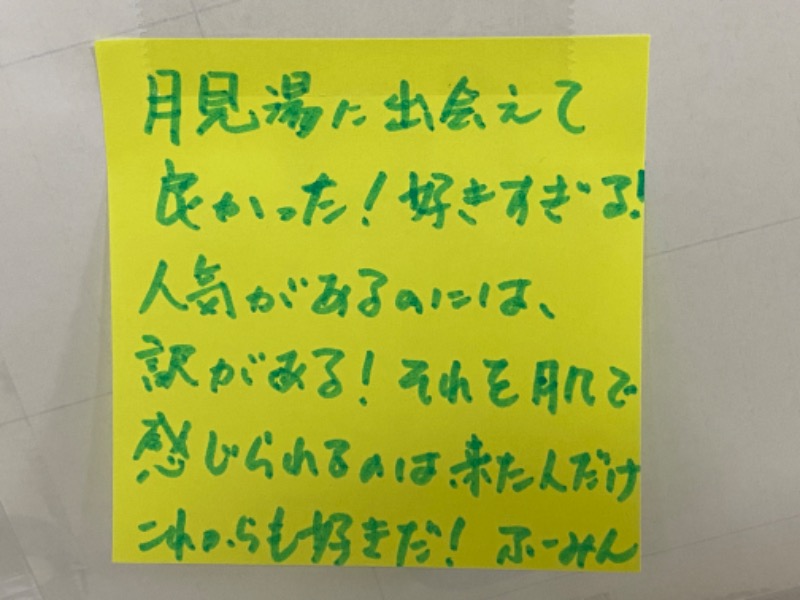 月見湯に出会えて
良かった！好きすぎる！
人気があるのには、
訳がある！それを肌で
感じられるのは来た人だけ
これからも好きだ！ ふーみん